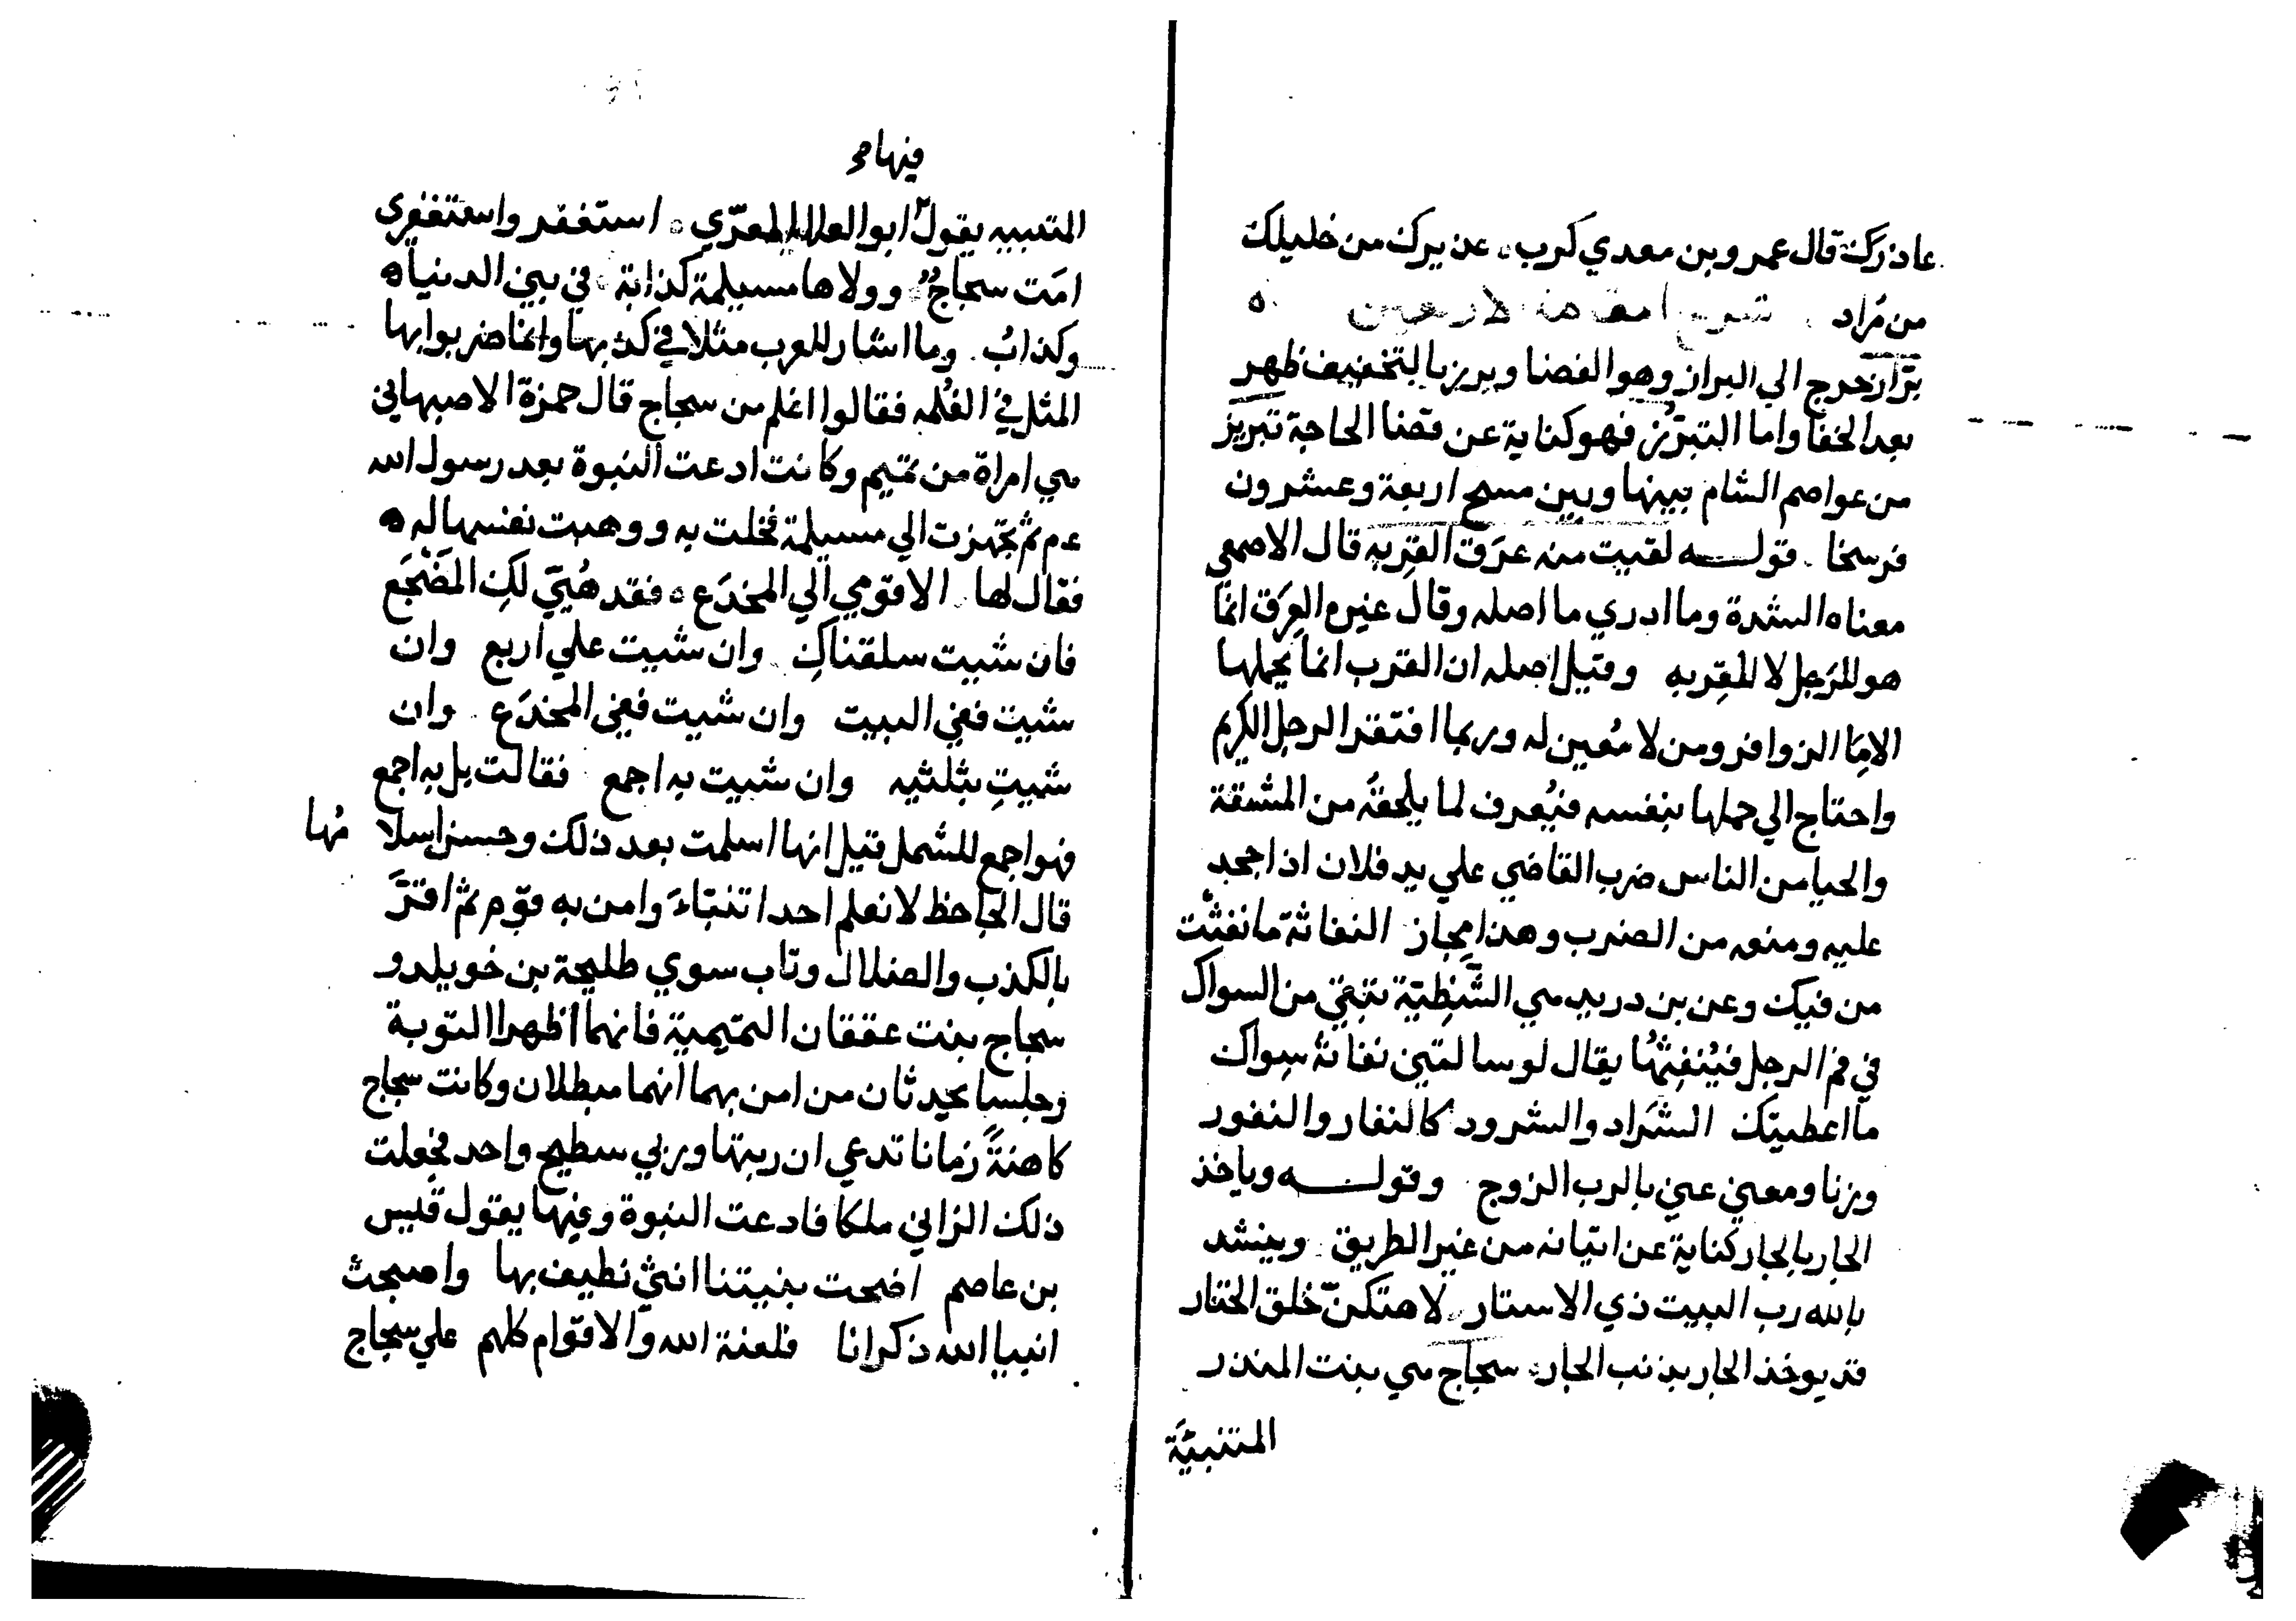 عاذرك قال عمرو بن معدي كرب عذيرك من خليلك
من مراد شرح المقامة الاربعين
برّاز خرج الي البراز وهو الفضا وبرز بالتخفيف ظهر
بعد الخفا واما التبرّز فهو كناية عن قضا الحاجة تبريز
من عواصم الشام بينها وبين منبج اربعة وعشرون
فرسخا قولـه لقيت منه عرَق القِربه قال الاصمعي
معناه الشدة وما ادري ما اصله وقال غيره العرَق انما
هو للرَجل لا للقِربه وقيل اصله ان القرب انما يحملها
الامَا الزوافر ومن لا مُعين له وربما افتقر الرجل الكريم
واحتاج الي حملها بنفسه فيُعرف لما يلحقه من المشقة
والحيا من الناس ضرب القاضي علي يد فلان اذا حجد
عليه ومنعه من الضرب وهذا مجاز النفاثة ما نفثت
من فيك وعن بن دريد هي الشَّنظِيّة تبقي من السواك
في فم الرجل فيُنفِثُها يقال لو سالتني نفاثة سِواك
ما اعطيتك الشَراد والشرود كالنفار والنفور
وزنا ومعني عني بالرب الزوج وقولـه وياخذ
الجار بالجار كناية عن اتيانه من غير الطريق وينشد
بالله رب البيت ذي الاستار لاهتكنّ خلق الختار
قد يوخذ الجار بذنب الجار سجاج هي بنت المنذر
المتنبيّة
فيها مح
المتنبيه يقول ابو العلا المعرّي استغفر واستغفري
امَت سجاجٌ وولاها مسيلمة كذابة في بني الدنيا
وكذابُ وما اشار للعرب مثلا في كذبها وانما ضربوا بها
المثل في الغُلمه فقالوا اغلم من سجاج قال حمزة الاصبهاني
هي امراة من تميم وكانت ادعت النبوة بعد رسول الله
عم ثم تجهزت الي مسيلمة فخلت به ووهبت نفسها له
فقال لها الا قومي الي المخدَع فقد هُيّي لكِ المَضْجَع
فان شيت سلقناكِ وان شيت علي اربع وان
شيت ففي البيت وان شيت ففي المخدَع وان
شيتِ بثلثيه وان شيت به اجمع فقالت بل به اجمع
فهو اجمع للشمل قيل انها اسلمت بعد ذلك وحسن اسلا مُها
قال الجاحظ لا نعلم احدا تنبّاءَ وامن به قوم ثم اقرَّ
بالكذب والضلال وتاب سوي طليحة بن خويلد و
سجاج بنت عقفان التميمية فانهما اظهرا التوبة
وجلسا يحدثان من امن بهما انهما مبطلان وكانت سجاج
كاهنةً زمانا تدعي ان ربيها وربي سطيح واحد فجعلت
ذلك الزاني ملكا فادعت النبوة وفيها يقول قيس
بن عاصم اضحت بنيتنا انثي نطيف بها واصبحت
انبيا الله ذكرانا فلعنة الله والاقوام كلهم علي سجاج